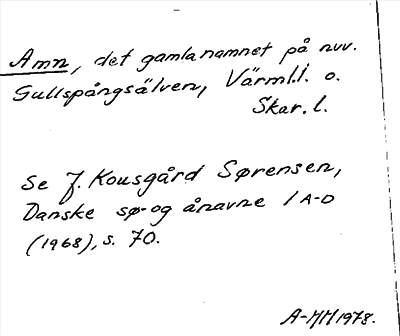 Amn, det gamla namnet på nuv.
Gullspångsälven, Värml.l. o.
Skar. l.
Se J. Kousgård Sørensen,
Danske sø- og ånavne I A-D
(1968), s. 70.
A-MH 1978.